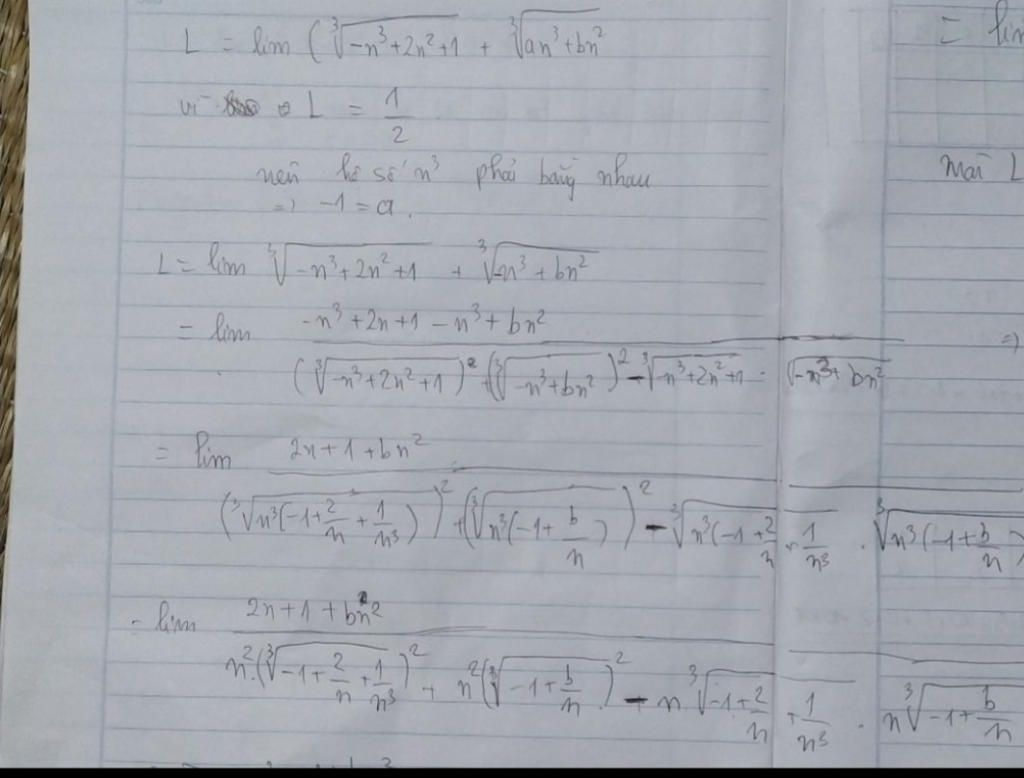 L = lim (∛(-n³+2n²+1) + ∛(an³+bn²)
= lim
vì L = 1/2
nên hệ số n³ phải bằng nhau
Mà L
=> -1 = a.
L = lim ∛(-n³+2n²+1) + ∛(-n³+bn²)
= lim (-n³+2n+1-n³+bn²)/((∛(-n³+2n²+1))²+(∛(-n³+bn²))²-∛(-n³+2n²+1) · √(-n³+bn²))
=>
= lim (2n+1+bn²)/((∛(n³(-1+2/n+1/n³)))²+(∛(n³(-1+b/n)))²-∛(n³(-1+2/n+1/n³) · ∛(n³(-1+b/n)))
= lim (2n+1+bn²)/(n²·(∛(-1+2/n+1/n³))²+n²(∛(-1+b/n))²-n·∛(-1+2/n+1/n³) · n∛(-1+b/n))